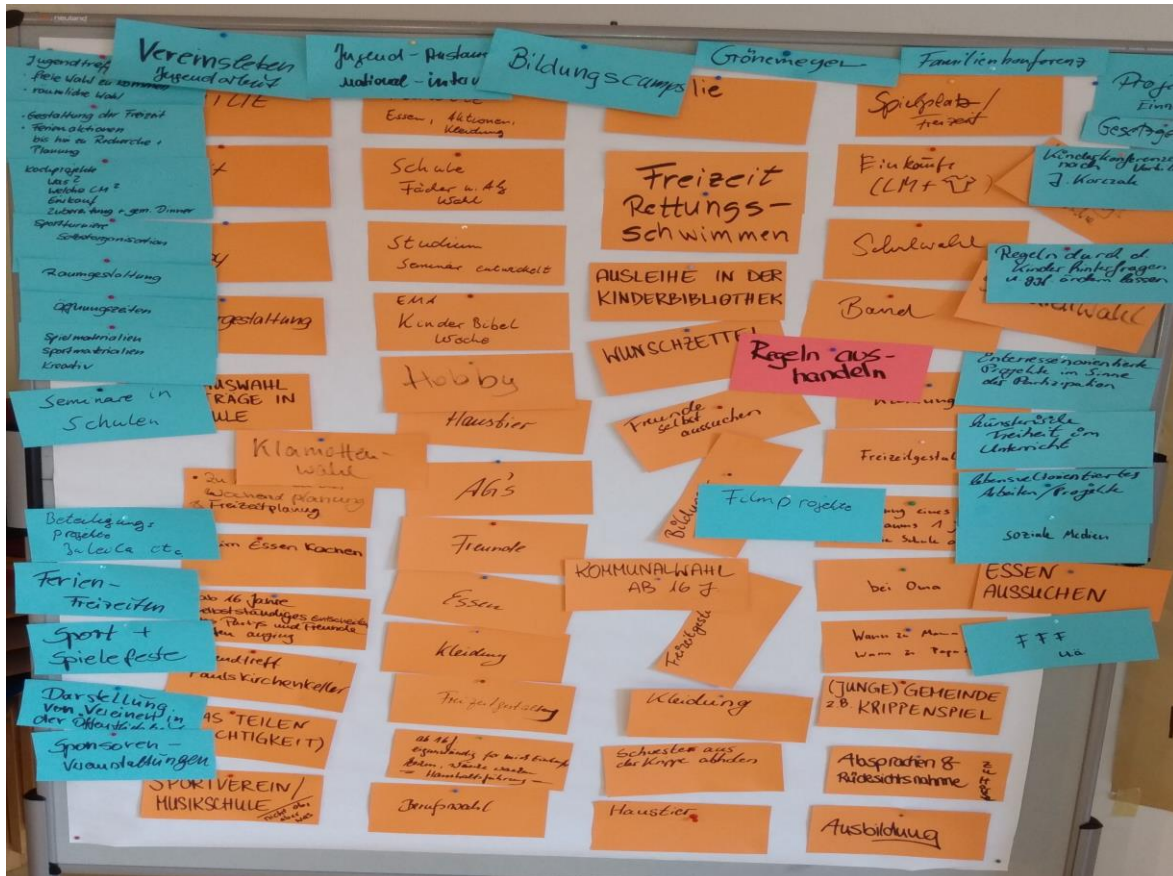 neuland
Jugendtreff
freie Wahl zu kommen
räumliche Wahl
Gestaltung der Freizeit
Ferienaktionen
bis hin zu Recherche +
Planung
Kochprojekte
Was?
Welche LM?
Einkauf
Zubereitung + gem. Dinner
Sportturnier
Selbstorganisation
Raumgestaltung
Öffnungszeiten
Spielmaterialien
Sportmaterialien
Kreativ
Seminare in
Schulen
Beteiligungs-
projekte
Juleica etc
Ferien-
Freizeiten
Sport +
Spielefeste
Darstellung
von Vereinen in
der Öffentlichkeit
Sponsoren-
veranstaltungen
Vereinsleben
Jugendarbeit
USWAHL
TRÄGE IN
ULE
Klamotten-
wahl
Wochenendplanung
& Freizeitplanung
im Essen Kochen
ab 16 Jahre
selbstständiges entscheiden
Partys und Freunde
anging
Jugendtreff
Paulskirchenkeller
AS TEILEN
CHTIGKEIT)
SPORTVEREIN/
MUSIKSCHULE
Jugend-Austau
national-inter
Essen, Aktionen,
Kleidung
Schule
Fächer u. AG
Wahl
Studium
Seminar entwickelt
EMA
Kinder Bibel
Woche
Hobby
Haustier
AG's
Freunde
Essen
Kleidung
Freizeitgestaltung
ab 16/
eigenständig
Haushaltsführung
Berufswahl
Bildungscamps
Grönemeyer
lie
Freizeit
Rettungs-
schwimmen
AUSLEIHE IN DER
KINDERBIBLIOTHEK
WUNSCHZETTEL
Regeln aus-
handeln
Freunde
selbst
aussuchen
Bildun
Filmprojekte
KOMMUNALWAHL
AB 16 J
Freizeitgest
Kleidung
Schwester aus
der Krippe abholen
Haustier
Familienkonferenz
Spielplatz/
freizeit
Einkäufe
(LM +
Schulwahl
Band
Freizeitgestal
bei Oma
Wann zu Mam
Wann zu Papa
(JUNGE) GEMEINDE
z.B. KRIPPENSPIEL
Absprachen &
Rücksichtsnahme
Ausbildung
Proje
Gesetzge
Kinderkonferenze
nach
J. Korczak
Regeln durch d.
Kinder hinterfragen
u. ggf. ändern lassen
wahl
Interessenorientierte
Projekte im Sinne
der Partizipation
künstlerische
Freiheit im
Unterricht
lebensweltorientiertes
Arbeiten/Projekte
soziale Medien
ESSEN
AUSSUCHEN
FFF
u.ä.